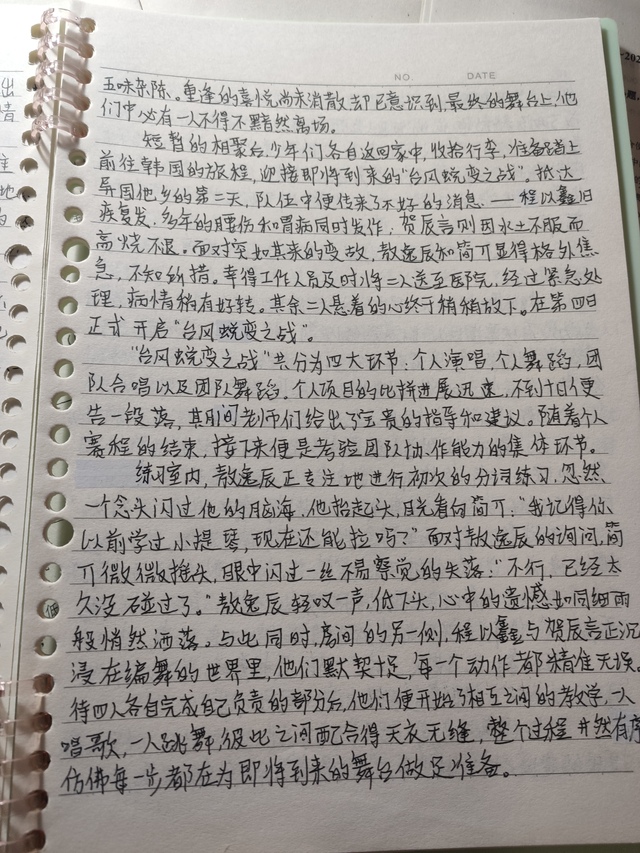 NO. DATE
五味杂陈。重逢的喜悦尚未消散却已意识到,最终的舞台上,他
们中必有一人不得不黯然离场。
短暂的相聚后,少年们各自返回家中,收拾行李,准备踏上
前往韩国的旅程,迎接即将到来的“台风蜕变之战”。抵达
异国他乡的第二天,队伍中便传来了不好的消息——程以鑫旧
疾复发,多年的腰伤和胃病同时发作,贺辰言则因水土不服而
高烧不退。面对突如其来的变故,敖逸辰和简亓显得格外焦
急,不知所措。幸得工作人员及时将二人送至医院,经过紧急处
理,病情稍有好转。其余二人悬着的心终于稍稍放下。在第四日
正式开启“台风蜕变之战”。
“台风蜕变之战”共分为四大环节:个人演唱,个人舞蹈,团
队合唱以及团队舞蹈。个人项目的比拼进展迅速,不到十日便
告一段落,其期间老师们给出了宝贵的指导和建议。随着个人
赛程的结束,接下来便是考验团队协作能力的集体环节。
练习室内,敖逸辰正专注地进行初次的分词练习,忽然,
一个念头闪过他的脑海,他抬起头,目光看向简亓:“我记得你
以前学过小提琴,现在还能拉吗?”面对敖逸辰的询问,简
亓微微摇头,眼中闪过一丝不易察觉的失落:“不行,已经太
久没碰过了。”敖逸辰轻叹一声,低下头,心中的遗憾如同细雨
般悄然洒落。与此同时,房间的另一侧,程以鑫与贺辰言正沉
浸在编舞的世界里,他们默契十足,每一个动作都精准无误。
待四人各自完成自己负责的部分后,他们便开始了相互之间的教学,一人
唱歌,一人跳舞,彼此之间配合得天衣无缝,整个过程井然有序
仿佛每一步都在为即将到来的舞台做足准备。